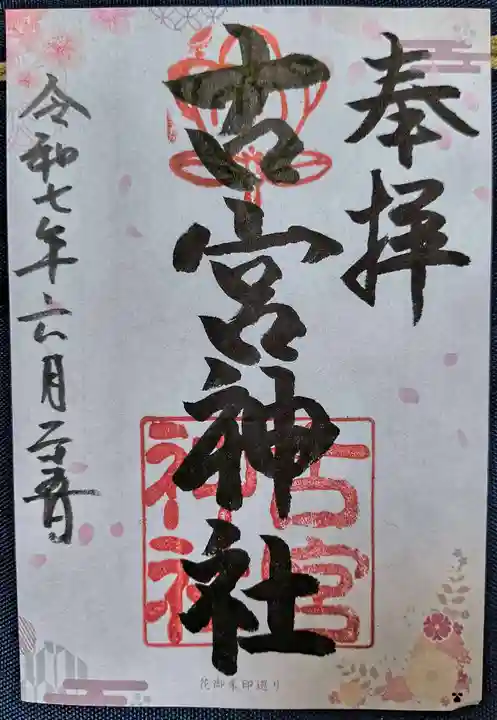 奉拝
古宮神社
古宮
神社
令和七年六月二十五日
花御朱印巡り